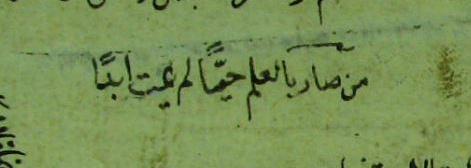 من صار بالعلم حيًّا لم يمت ابدًا